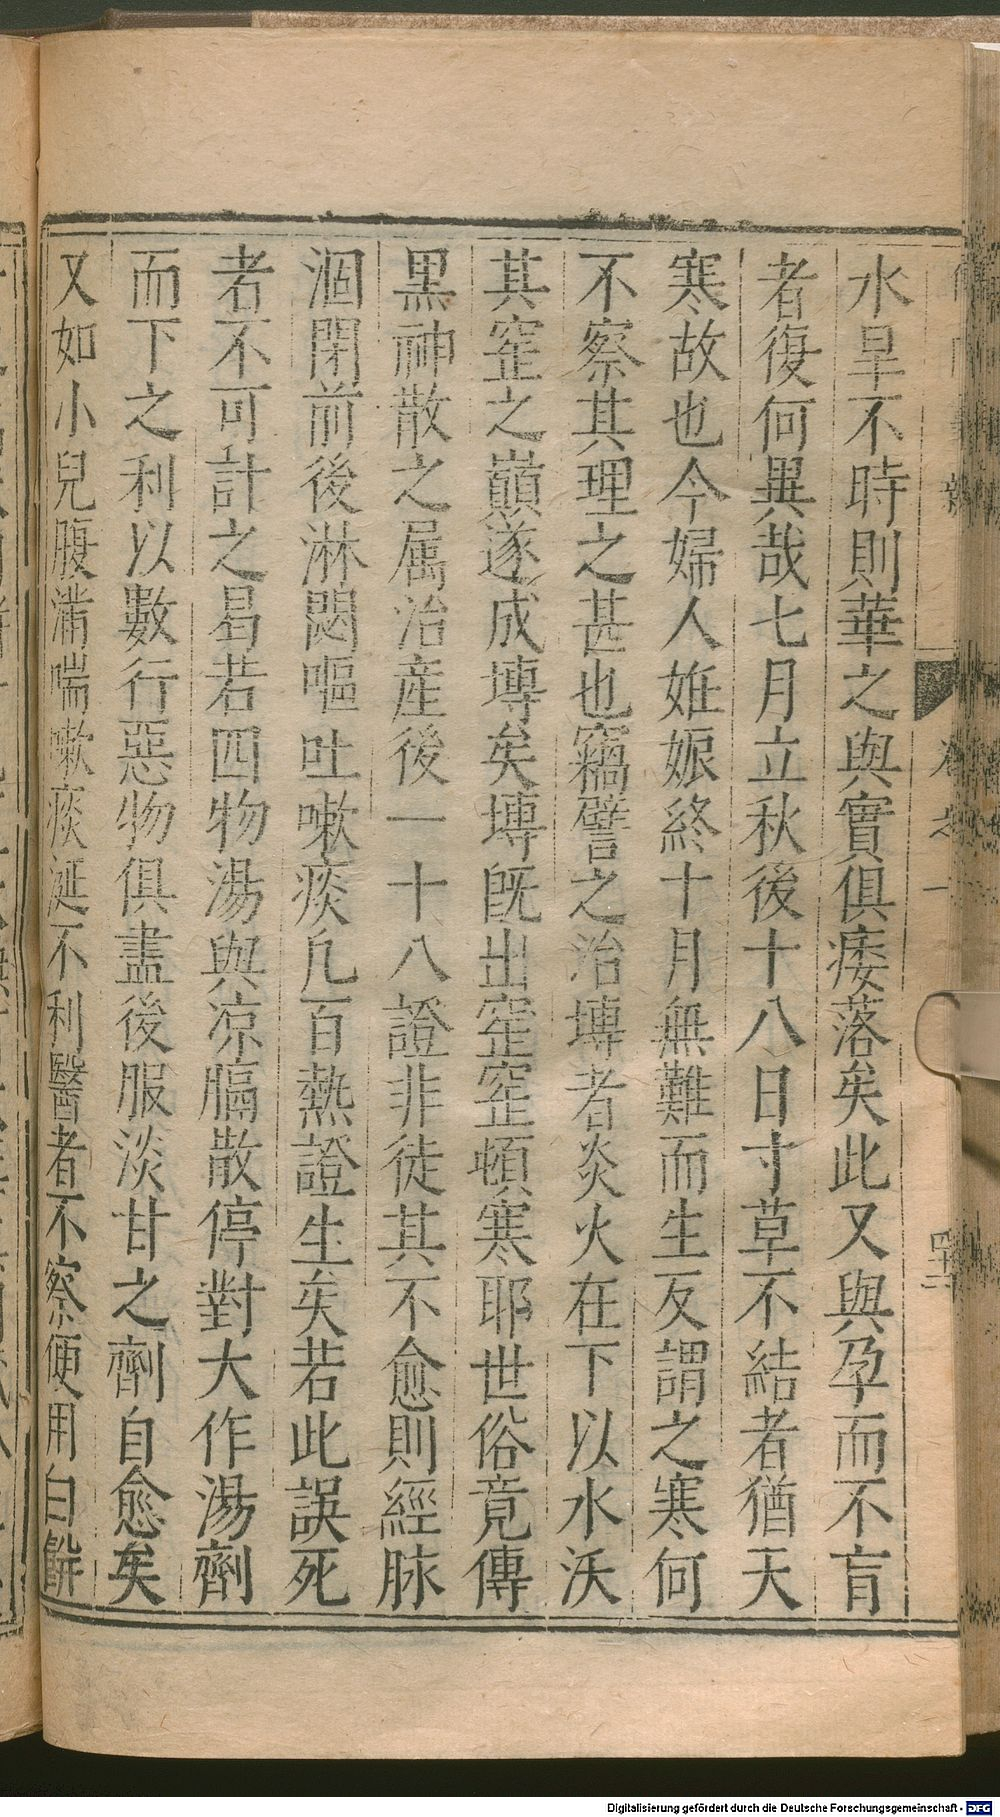 水旱不時則華之與實俱痿落矣此又與孕而不育
者復何異哉七月立秋後十八日寸草不結者猶天
寒故也今婦人姙娠終十月無難而生反謂之寒何
不察其理之甚也竊譬之治塼者炎火在下以水沃
其窰之巔遂成塼矣塼旣出窰窰頓寒耶世俗竟傳
黒神散之屬治産後一十八證非徒其不愈則經脉
涸閉前後淋閟嘔吐嗽痰凢百熱證生矣若此誤死
者不可計之曷若四物湯與凉膈散停對大作湯劑
而下之利以數行惡物俱盡後服淡甘之劑自愈矣
又如小兒腹滿喘嗽痰涎不利醫者不察便用白餅
Digitalisierung gefördert durch die Deutsche Forschungsgemeinschaft - DFG